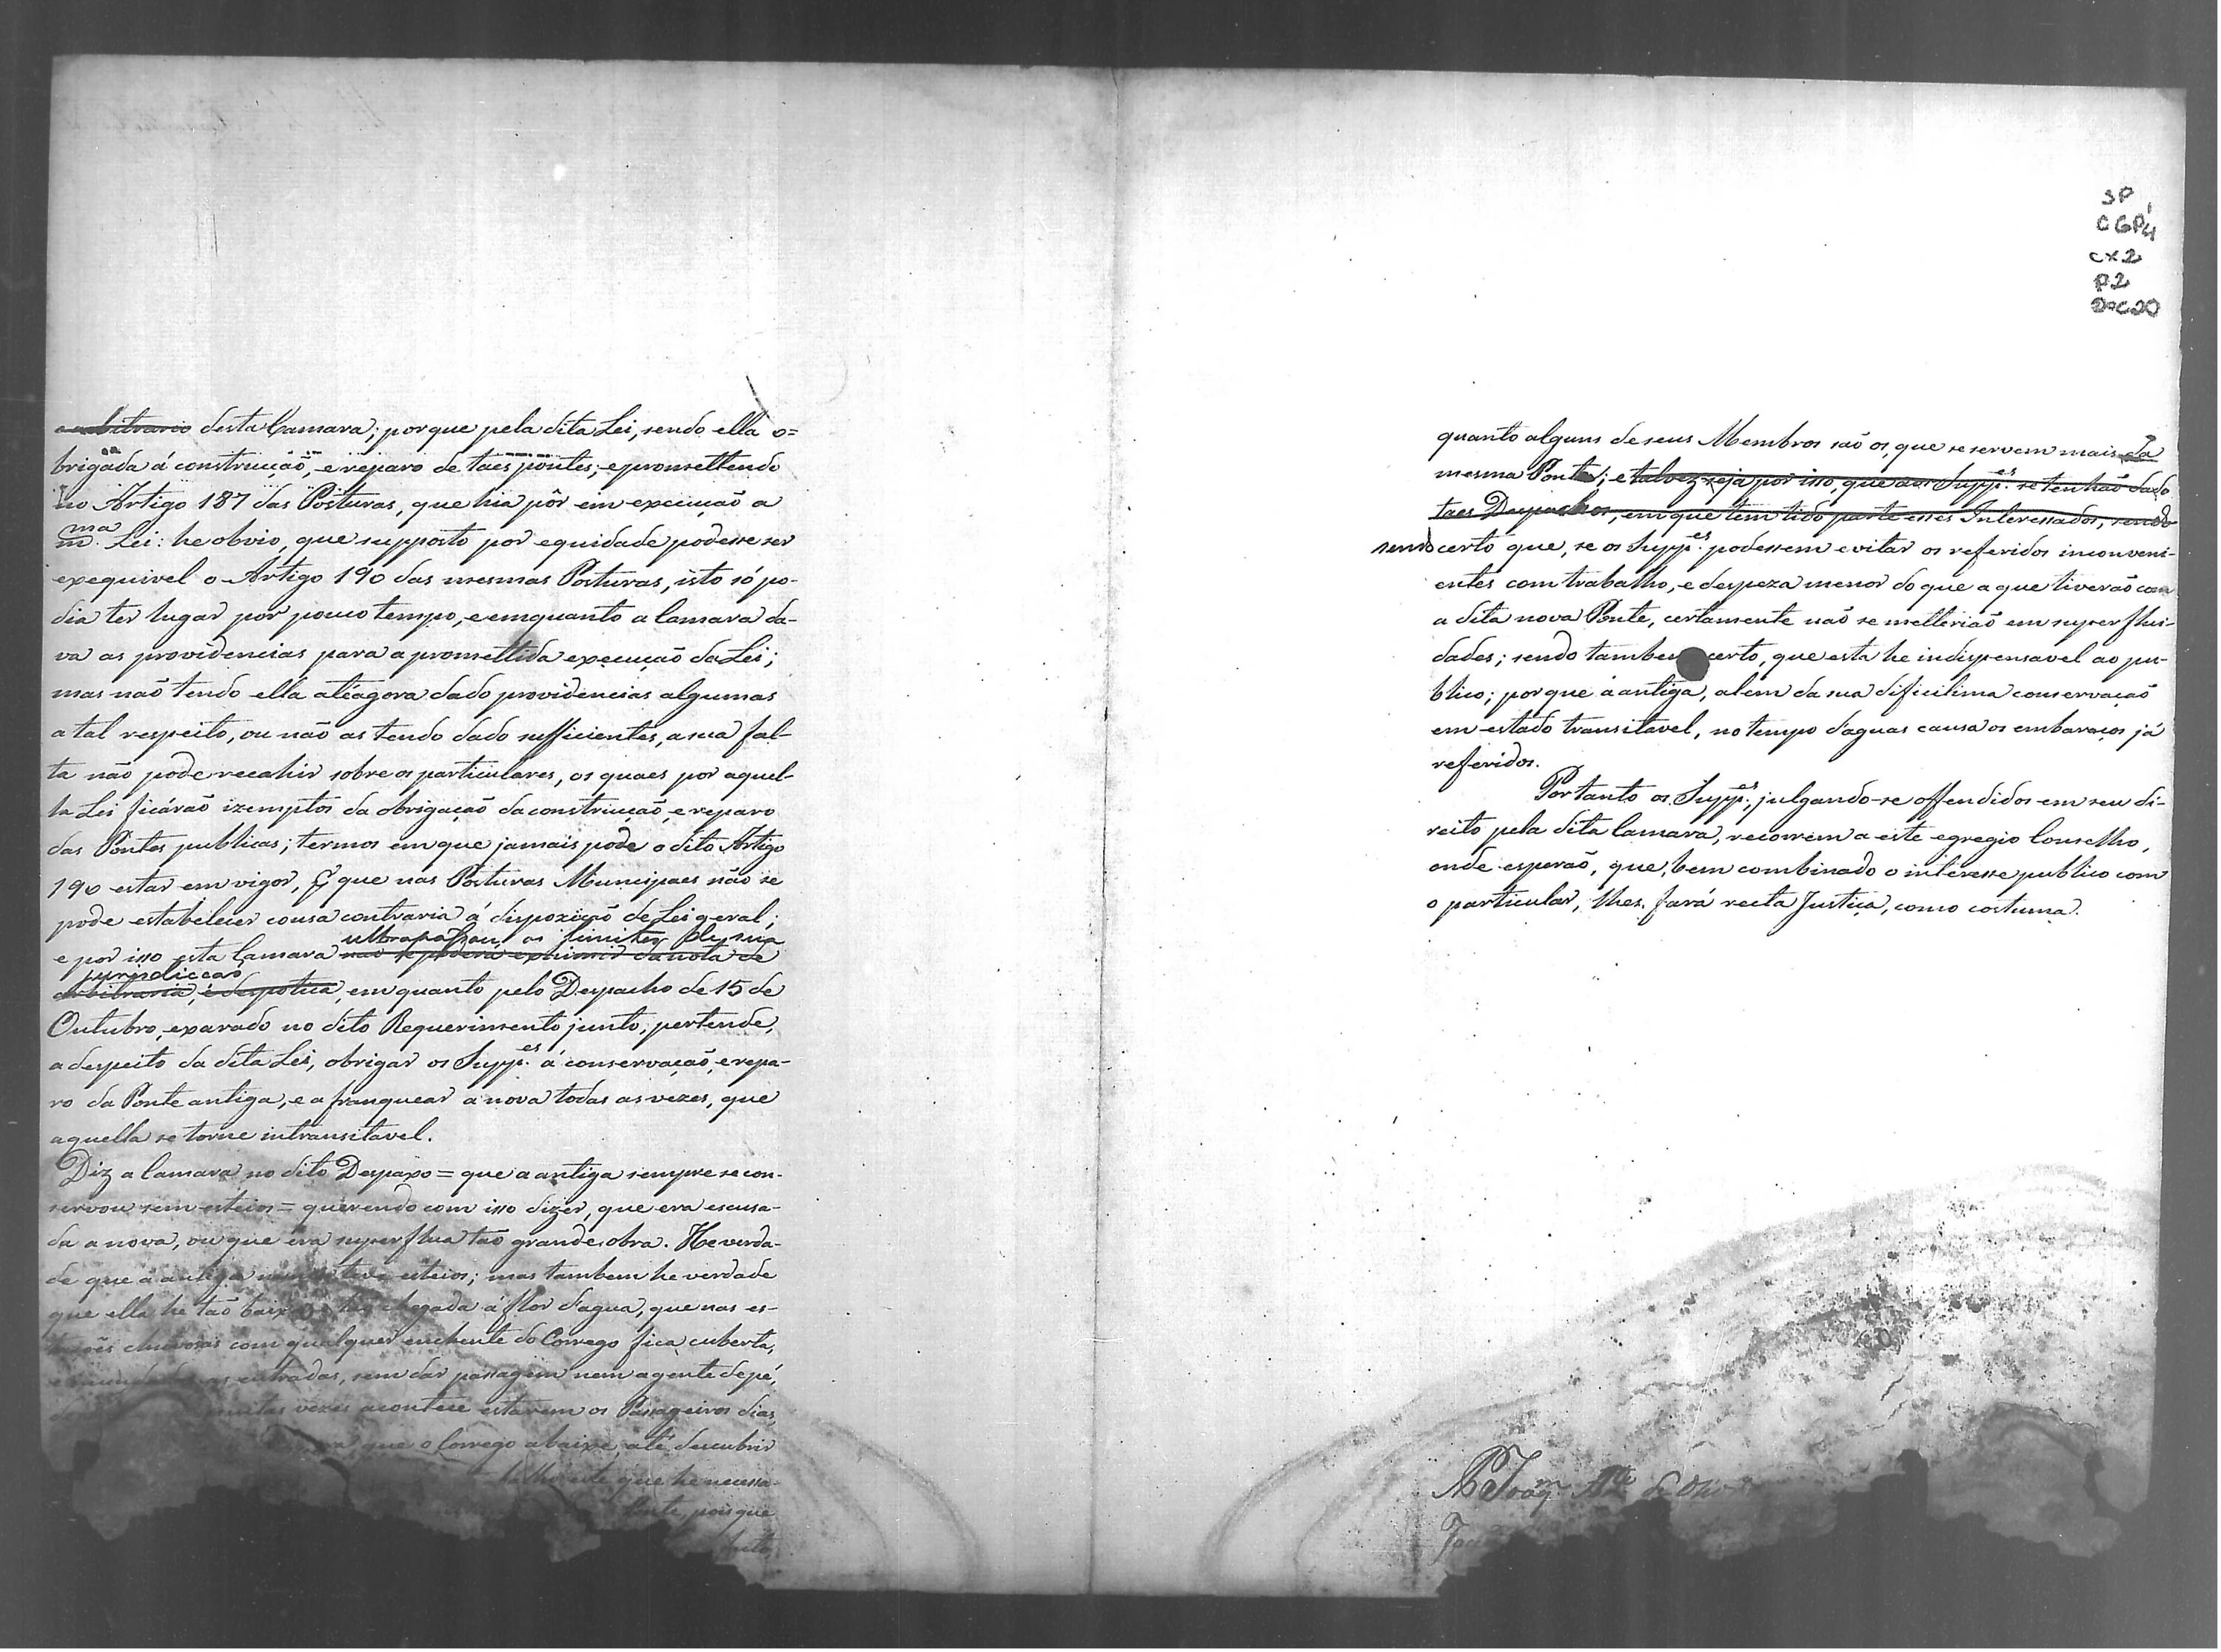 arbitrario desta Camara; porque pela dita Lei, sendo ella o=
brigada á construcçaõ, e reparo de taes pontes; e promettendo
no Artigo 187 das Posturas, que hia pôr em execuçaõ a
m.ma Lei: he obvio, que supposto por equidade podesse ser
exequivel o Artigo 190 das mesmas Posturas, isto só po-
dia ter lugar por pouco tempo, e emquanto a Camara da-
va as providencias para a promettida execuçaõ da Lei;
mas naõ tendo ella atéagora dado providencias algumas
a tal respeito, ou não as tendo dado sufficientes, a sua fal-
ta não pode recahir sobre os particulares, os quaes por aquel-
la Lei ficáraõ izemptos da obrigaçaõ da construcçaõ, e reparo
das Pontes publicas; termos em que jamais pode o dito Artigo
190 estar em vigor, que nas Posturas Municipaes não se
pode estabelecer cousa contraria á dispoziçaõ de Lei geral;
ultrapassou os limites de sua
e por isso esta Camara não se poderá eximir da nota de
jurisdicçaõ
arbitraria, e despotica, em quanto pelo Despacho de 15 de
Outubro, exarado no dito Requerimento junto, pertende,
a despeito da dita Lei, obrigar os Supp.es á conservaçaõ, e repa-
ro da Ponte antiga, e a franquear a nova todas as vezes, que
aquella se torne intransitavel.
Diz a Camara no dito Despaxo = que a antiga sempre se con-
servou sem esteios = querendo com isso dizer, que era escusa-
da a nova, ou que era superflua taõ grande obra. He verda-
de que a antiga nunca teve esteios; mas tambem he verdade
que ella he taõ baixa, e taõ chegada á flor d'agua, que nas es-
tações chuvosas com qualquer enchente do Corrego fica cuberta,
as entradas, sem dar passagem nem a gente de pé,
muitas vezes acontece estarem os Passageiros dias,
que o Corrego abaixe, até descubrir
que he necessa-
Ponte, pois que
SP
CGP4
cx2
P2
Doc20
quanto alguns de seus Membros saõ os, que se servem mais da
mesma Ponte; e talvez seja por isso, que aos Supp.es se tenhaõ dado
taes Despachos, em que tem tido parte esses Interessados, sendo
sendo certo que, se os Supp.es podessem evitar os referidos inconveni-
entes com trabalho, e despeza menor do que a que tiveraõ com
a dita nova Ponte, certamente naõ se metteriaõ em superflui-
dades; sendo tambem certo, que esta he indispensavel ao pu-
blico; porque a antiga, alem da sua dificilima conservaçaõ
em estado transitavel, no tempo d'aguas causa os embaraços já
referidos.
Portanto os Supp.es, julgando-se offendidos em seu di-
reito pela dita Camara, recorrem a este egregio Conselho,
onde esperaõ, que, bem combinado o interesse publico com
o particular, lhes fará recta Justiça, como costuma.